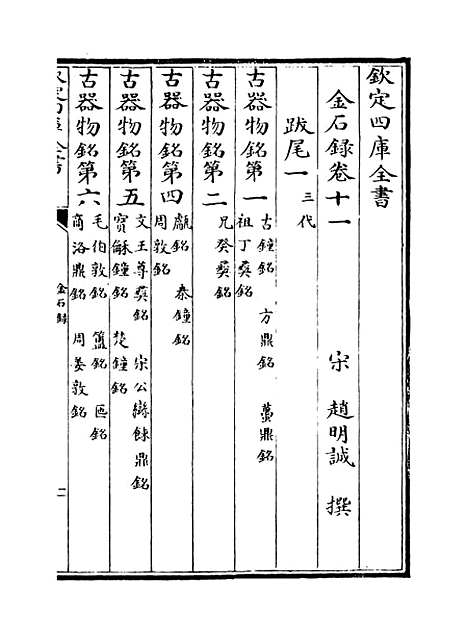 欽定四庫全書
金石録卷十一
宋 趙明誠 撰
跋尾一 三代
古器物銘第一
古鐘銘 方鼎銘 蠆鼎銘
祖丁彞銘
古器物銘第二
兄癸彞銘
古器物銘第四
甗銘 秦鐘銘
周敦銘
古器物銘第五
文王尊彞銘 宋公䜌餗鼎銘
寳龢鐘銘 楚鐘銘
古器物銘第六
毛伯敦銘 簠銘 匜銘
商洛鼎銘 周姜敦銘
金石録